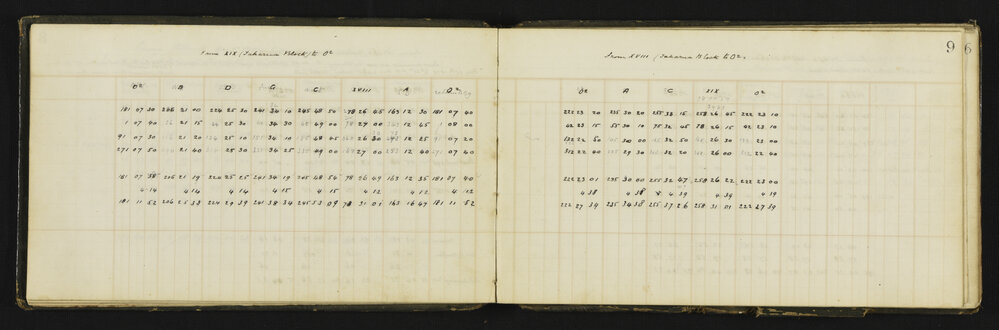 From XIX (Taharua Block) to O²
O² B D G C XVIII A O²
181 07 30 206 21 00 224 25 30 241 34 10 245 48 50 78 26 45 163 12 30 181 07 40
1 07 40 26 21 15 25 30 34 30 49 00 27 00 12 45 1 08 00
91 07 30 21 20 25 10 34 10 48 45 26 30 12 25 07 20
271 07 50 21 40 25 30 34 25 49 00 27 00 12 40 07 40
181 07 38 206 21 19 224 25 25 241 34 19 245 48 54 78 26 49 163 12 35 181 07 40
4 14 4 14 4 14 4 15 4 15 4 12 4 12 4 12
181 11 52 206 25 33 224 29 39 241 38 34 245 53 09 78 31 01 163 16 47 181 11 52
96
From XVIII (Taharua Block to O².
O² A C XIX O²
222 23 20 235 30 20 255 33 15 258 26 45 222 23 10
42 23 15 55 30 10 75 32 45 78 26 15 42 23 10
132 22 50 30 00 32 50 26 30 23 00
312 22 40 29 30 32 20 26 00 22 40
222 23 01 235 30 00 255 32 47 258 26 22 222 23 00
4 38 4 38 4 39 4 39 4 19
222 27 39 235 34 38 255 37 26 258 31 01 222 27 39